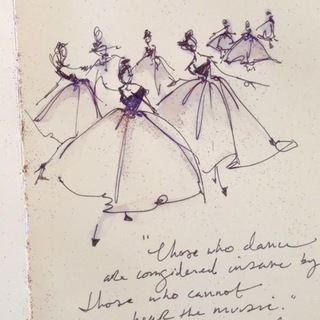 "Those who dance
are considered insane by
those who cannot
hear the music."